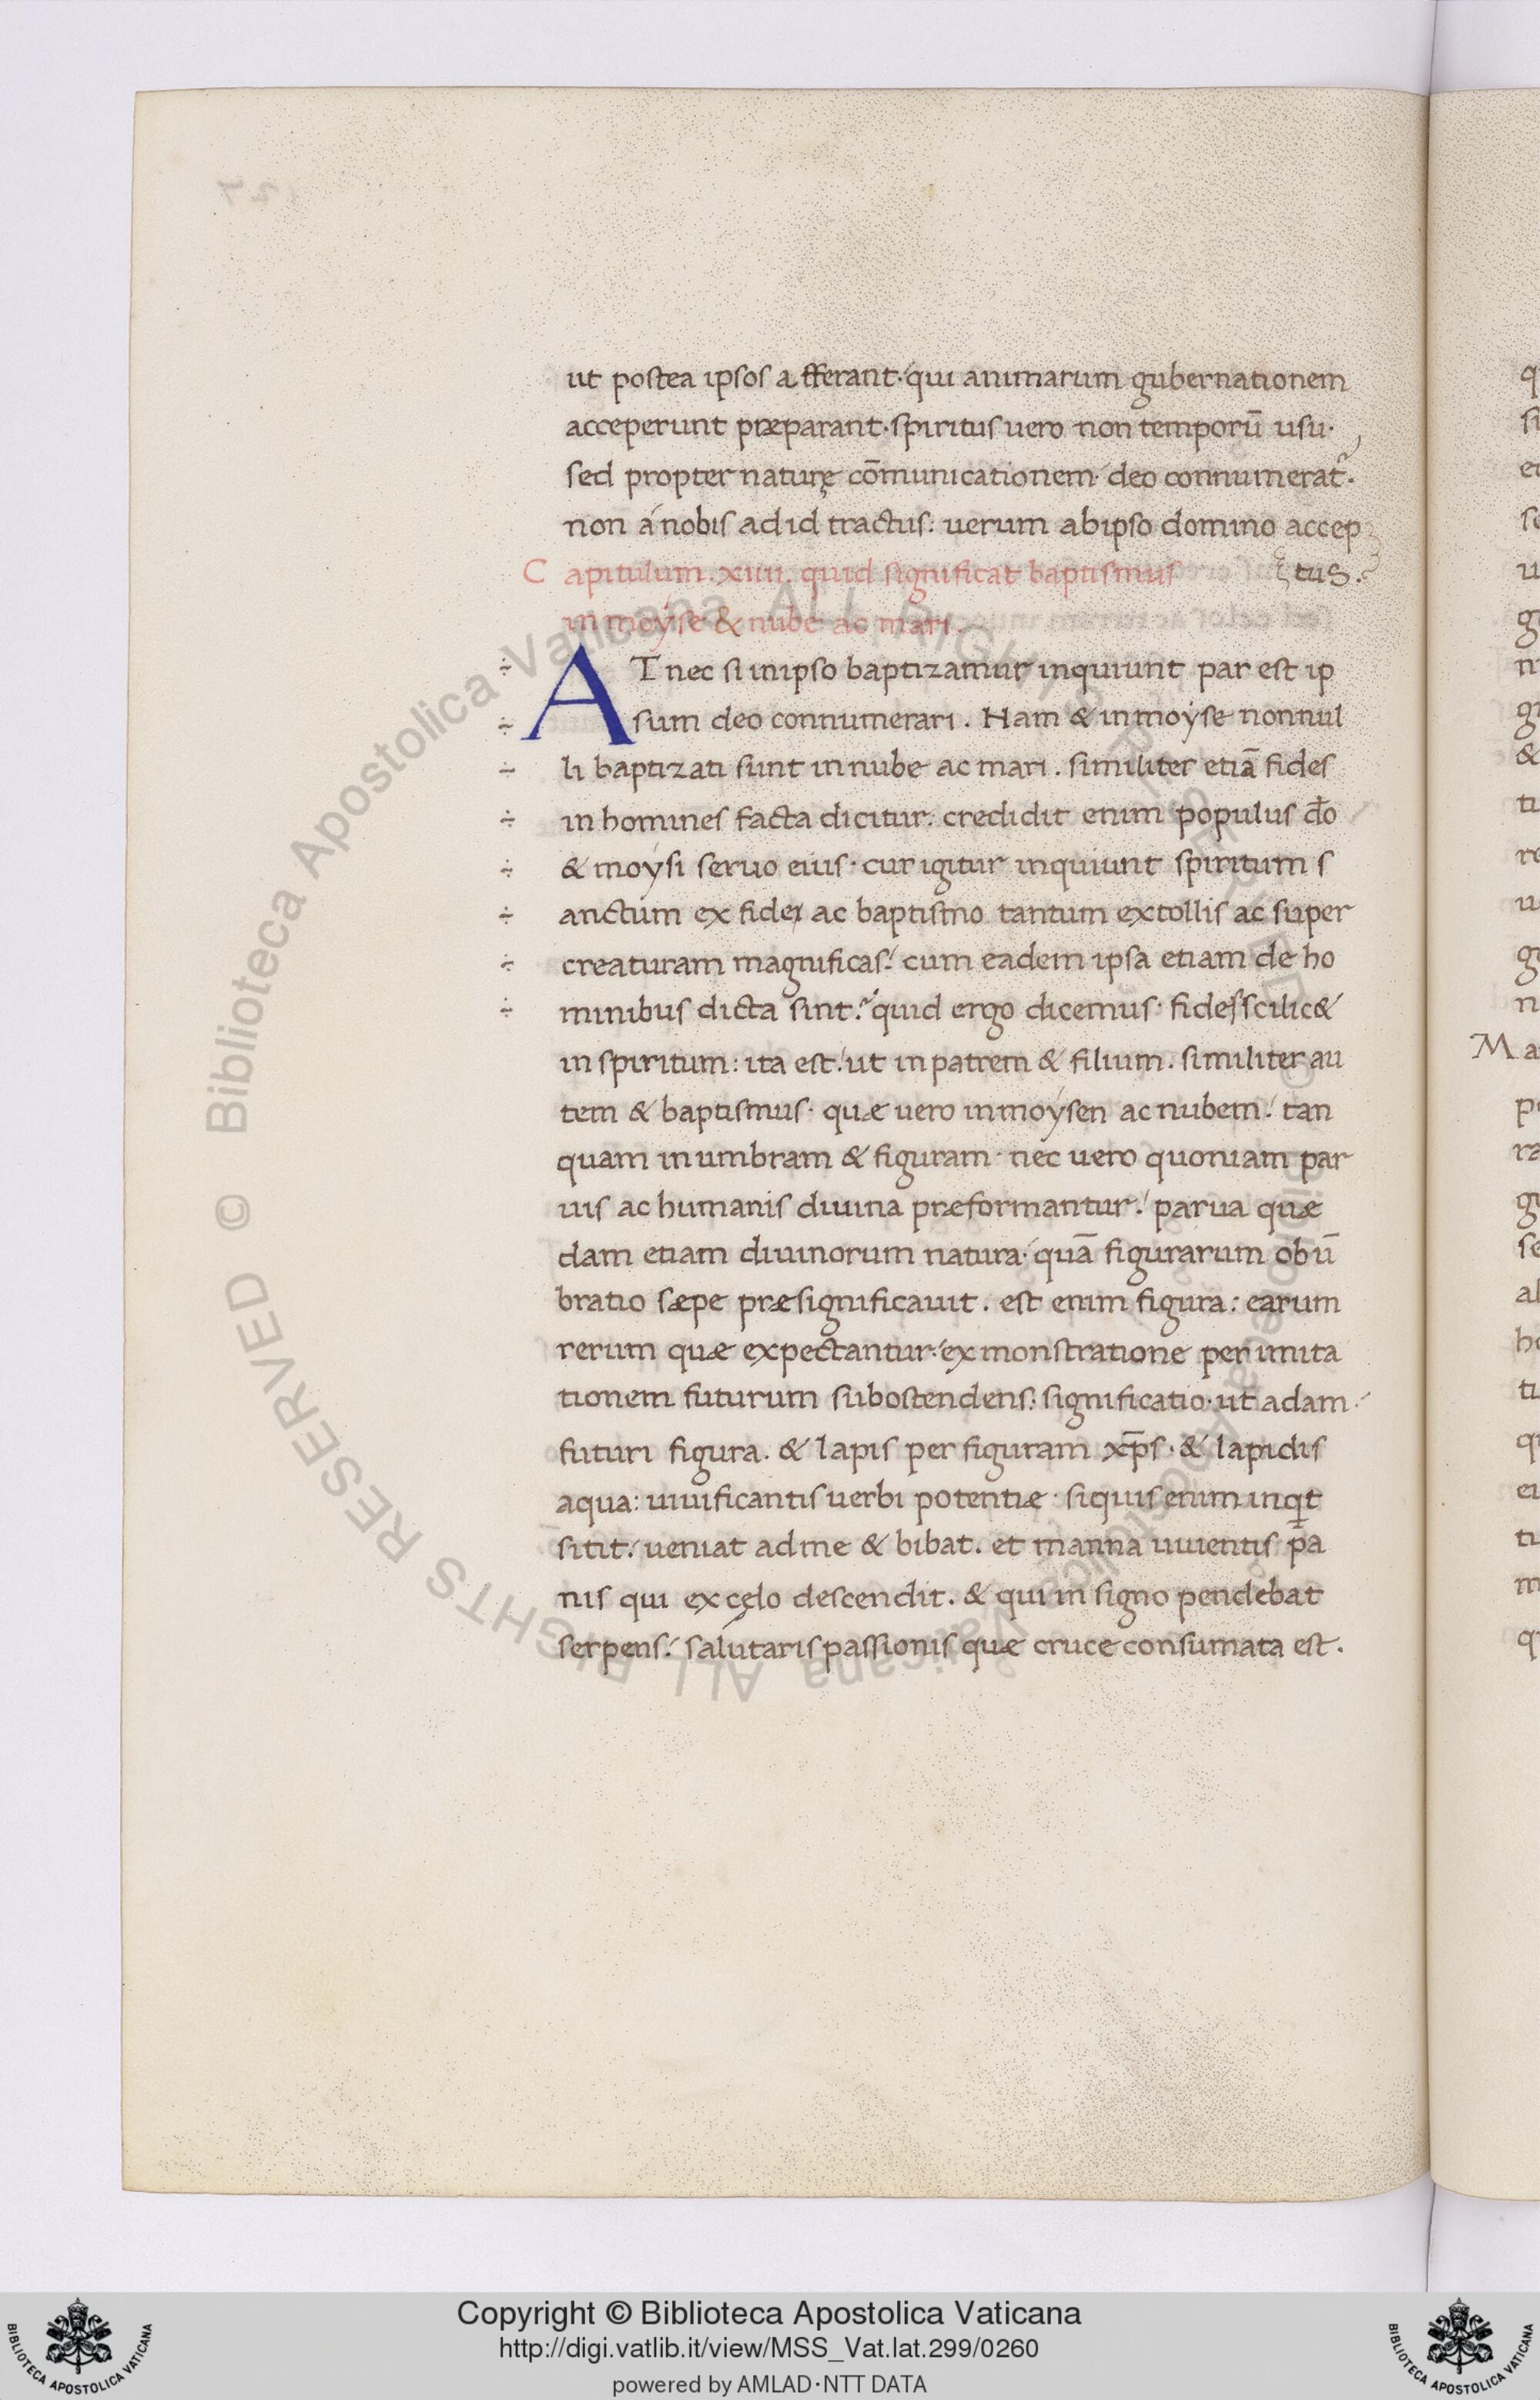 ut postea ipsos afferant. qui animarum gubernationem
acceperunt præparant. spiritus uero non temporū usu.
sed propter naturę cōmunicationem. deo connumerat᷑.
non á nobis ad id tractus: uerum ab ipso domino accep
tus.
Capitulum. xiiii. quid significat baptismus
in moyse & nube ac mari.
AT nec si in ipso baptizamur inquiunt par est ip
sum deo connumerari. Nam & in moyse nonnul
li baptizati sunt in nube ac mari. similiter etiā fides
in homines facta dicitur: credidit enim populus d̄o
& moysi seruo eius. cur igitur inquiunt spiritum s
anctum ex fide ac baptismo tantum extollis ac super
creaturam magnificas: cum eadem ipsa etiam de ho
minibus dicta sint? quid ergo dicemus. fides scilic&
in spiritum: ita est: ut in patrem & filium. similiter au
tem & baptismus. quæ uero in moysen ac nubem: tan
quam in umbram & figuram. nec uero quoniam par
uis ac humanis diuina præformantur: parua quæ
dam etiam diuinorum natura. quā figurarum obū
bratio sæpe præsignificauit. est enim figura: earum
rerum quæ expectantur. ex monstratione per imita
tionem futurum subostendens: significatio. ut adam.
futuri figura. & lapis per figuram xp̄s. & lapidis
aqua: uiuificantis uerbi potentiæ. siquis enim inqt
sitit: ueniat ad me & bibat. et manna uiuentis pa
nis qui ex cęlo descendit. & qui in signo pendebat
serpens: salutaris passionis quæ cruce consumata est.
© Biblioteca Apostolica Vaticana ALL RIGHTS RESERVED
Copyright © Biblioteca Apostolica Vaticana
http://digi.vatlib.it/view/MSS_Vat.lat.299/0260
powered by AMLAD·NTT DATA
BIBLIOTECA APOSTOLICA VATICANA
BIBLIOTECA APOSTOLICA VATICANA